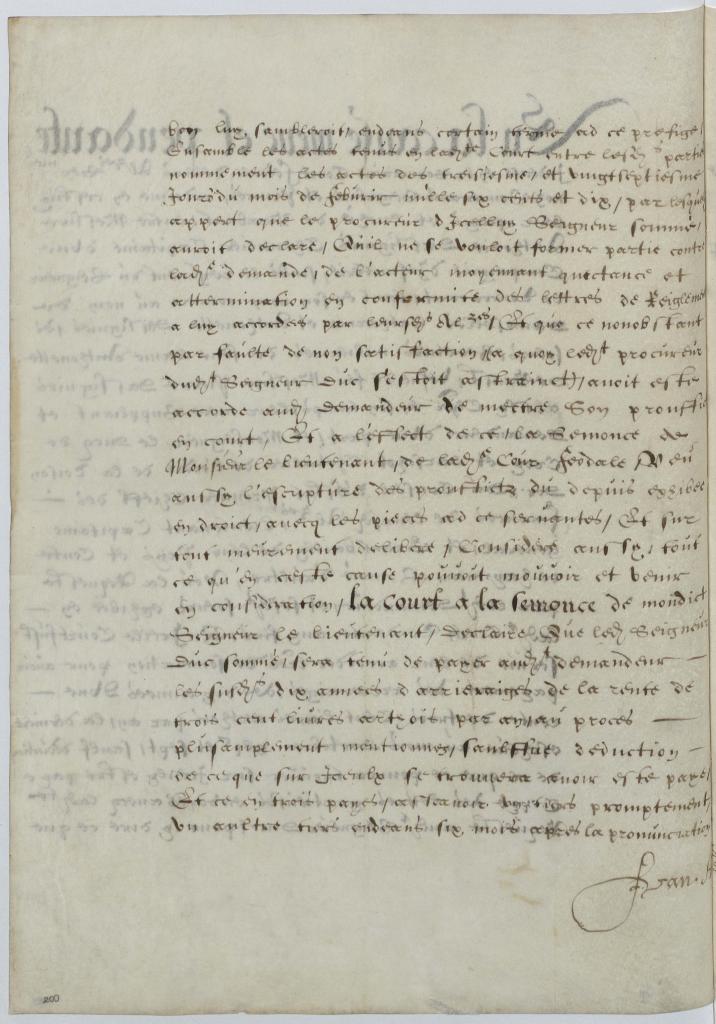 bon luy sambleroit, endeans certain terme ad ce prefige,
Ensamble les actes tenus en lad^te Court entre lesd^s partie
nommement les actes des treisiesme, et vingtseptiesme
Jours du mois de Febvrir mille six cents et dix, par lesquelz
appert que le procureur d'Jcelluy Seigneur somme,
auroit declare, Quil ne se vouloit former partie contre
lad^e demande, de l'acteur moyennant quictance et
attermination en conformite des lettres de Reiglement
a luy accordes par leurs Al^zes, Et que ce nonobstant
par faulte de non satisfaction (a quoy led^t procureur
dud^t Seigneur Duc s'estoit astrainct), avoit este
accorde aud^t Demandeur de mectre Son prouffit
en court, Et a l'effect de ce, la Semonce de
Monsieur le lieutenant, de lad^e Cour Feodale, Veu
aussy l'escripture des prouffictz du depuis exhibee
en droict, avecq les pieces ad ce servantes, Et sur
tout meurement delibere, Considere aussy, tout
ce qu'en ceste cause pouvoit mouvoir et venir
en consideration, la Court a la semonce de mondict
Seigneur le lieutenant, Declaire, Que led^t Seigneur
Duc somme, sera tenu de payer aud^t demandeur —
les susd^s dix annees d'arrieraiges de la rente de
trois cent livres arthois par an, au proces —
plusamplement mentionnez, saulffue deduction —
de ce que sur Jceulx se trouvera avoir este paye,
Et ce en trois payes, ascavoir ung tiers promptement
un aultre tiers endeans six mois apres la pronunciation
Fran.
200